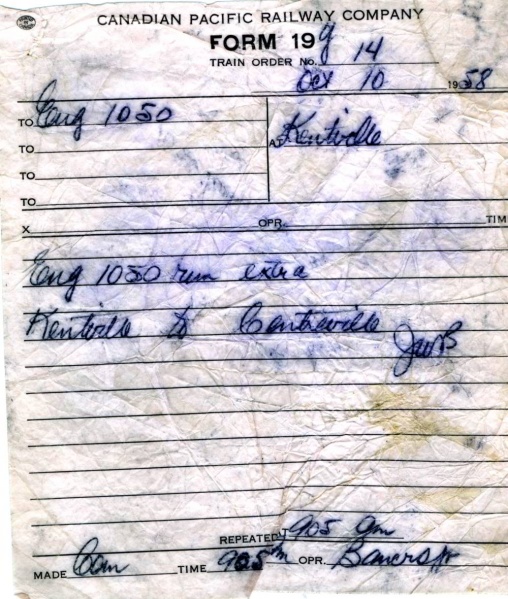 CANADIAN PACIFIC RAILWAY COMPANY
FORM 19 g
TRAIN ORDER No. 14
Oct 10 1958
TO Eng 1050
AT Kentville
TO
TO
TO
X OPR. TIM
Eng 1050 run extra
Kentville to Centreville
JWB
REPEATED 905 am
MADE Com TIME 905 am OPR. Bancroft